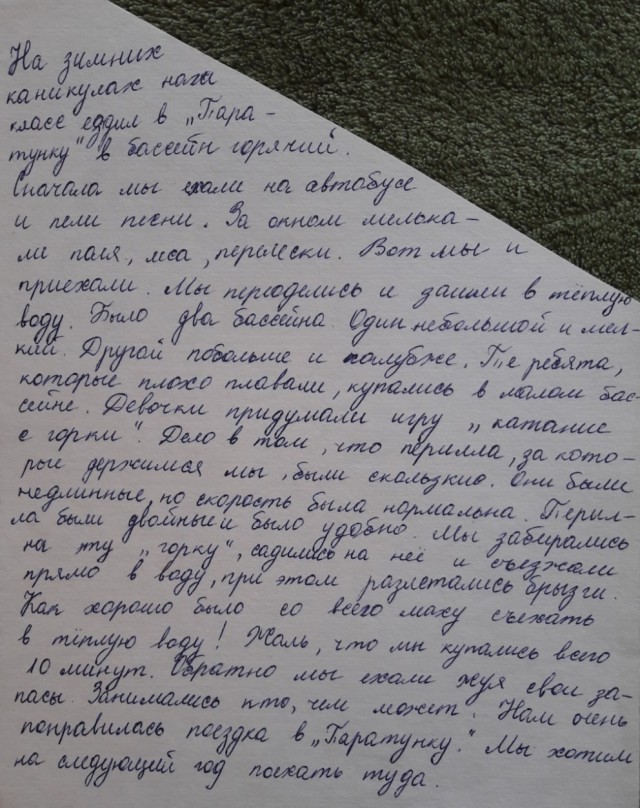 На зимних
каникулах наш
класс ездил в „Пара-
тунку" в бассейн горячий.
Сначала мы ехали на автобусе
и пели песни. За окном мелька-
ли поля, леса, перелески. Вот мы и
приехали. Мы переоделись и зашли в тёплую
воду. Было два бассейна. Один небольшой и мел-
кий. Другой побольше и поглубже. Те ребята,
которые плохо плавали, купались в малом бас-
сейне. Девочки придумали игру „катание
с горки". Дело в том, что перилла, за кото-
рые держимся мы, были скользкие. Они были
недлинные, но скорость была нормальна. Перил-
ла были двойные и было удобно. Мы забирались
на эту „горку", садились на неё и съезжали
прямо в воду, при этом разлетались брызги.
Как хорошо было со всего маху съехать
в тёплую воду! Жаль, что мы купались всего
10 минут. Обратно мы ехали жуя свои за-
пасы. Занимались кто, чем может. Нам очень
понравилась поездка в „Паратунку." Мы хотим
на следующий год поехать туда.